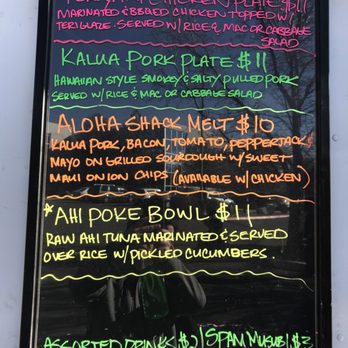 CHICKEN PLATE $11
MARINATED & BBQ'ED CHICKEN TOPPED W/
TERI GLAZE. SERVED W/ RICE & MAC OR CABBAGE
SALAD
KALUA PORK PLATE $11
HAWAIIAN STYLE SMOKEY & SALTY PULLED PORK
SERVED W/ RICE & MAC OR CABBAGE SALAD
ALOHA SHACK MELT $10
KALUA PORK, BACON, TOMATO, PEPPERJACK &
MAYO ON GRILLED SOURDOUGH W/ SWEET
MAUI ONION CHIPS (AVAILABLE W/ CHICKEN)
*AHI POKE BOWL $11
RAW AHI TUNA MARINATED & SERVED
OVER RICE W/ PICKLED CUCUMBERS.
ASSORTED DRINKS $2 / SPAM MUSUBI $3